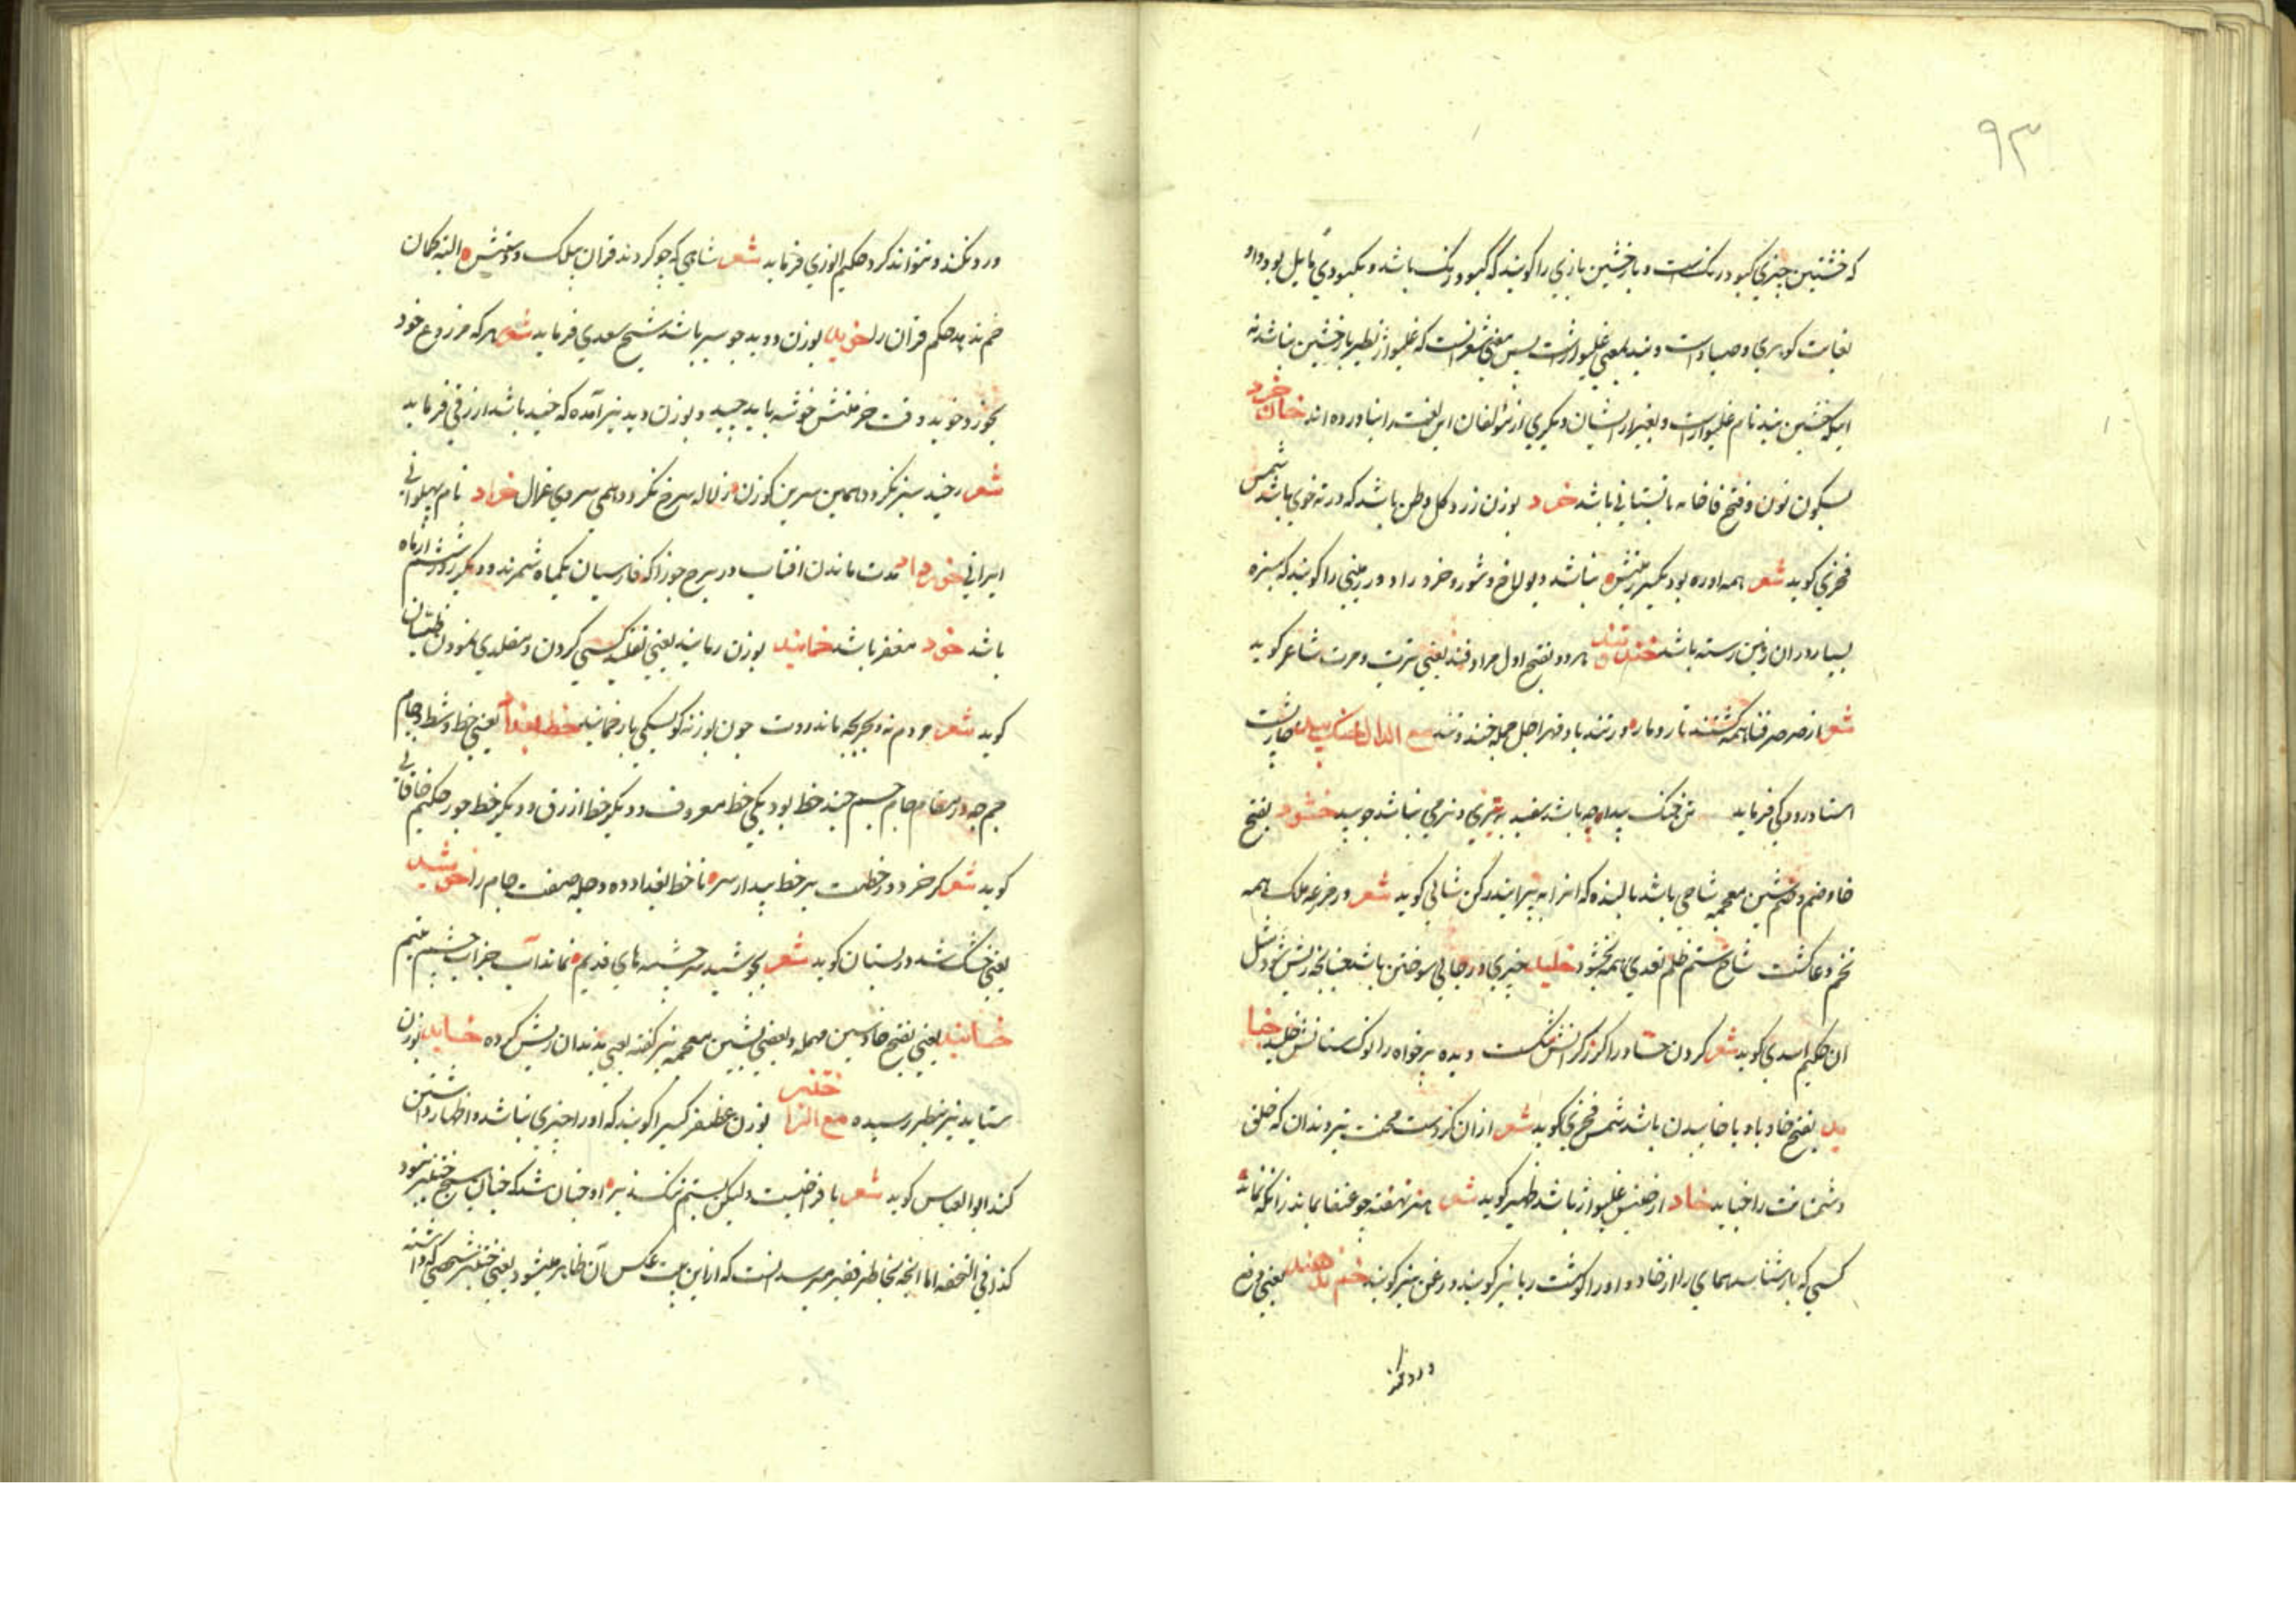 ۹۳
که خشین چیزی کبود رنکست و باز خشین بازی را کویند که کبود رنک باشد و بکبودی مایل بود و او
بغایت کوهری و صیاد است و بند بمعنی غلیواژ است پس معنی شعر انست که غلیواژ نظیر باز خشین نباشد نه
اینکه خشین بند نام غلیواز است و بغیر از ایشان دیکری از مؤلفان این لغت را نیاورده اند خان خرد
بسکون نون و فتح فا خانه تابستانی باشد خرد بوزن زرد کل و طین باشد که در ته جوی باشد شمس
فخری کوید شعر همه اوره بود بکسر نباشد و لای خرد و خرد را و زمینی را کویند که سبزه
بسیار در آن زمین رسته باشد خند تند هر دو بفتح اول مرادفند یعنی ترت و مرت شاعر کوید
شعر از صرصر فنا همه کشتند تار و مار وز تند باد قهر اجل جمله خند و تند مع الدال
استاد رودکی فرماید تن خنک بید ار چه باشد سفید به تری و نرمی نباشد چو بید خشود بفتح
خا و ضم شین معجمه شاخی باشد بالیده که انرا به پیرایند رکن شانی کوید شعر در مزرعه ملک همه
تخم دعا کشت شاخ ستم ظلم تعدی همه بخشود خلید چیزی در جایی سوختن باشد چنانچه ریش شود مثل
ان حکیم اسدی کوید شعر کردن را کرز کرانش شکست دیده بدخواه را نوک سنانش خلید خا
ید بفتح خا و با و یا خاییدن باشد شمس فخری کوید شعر از ان کردست محنت تیز دندان که خلق
دشمنانت را خاید خاد از جنس غلیواژ باشد ظهیر کوید شعر هنر نهفته چو عنقا بماند زانکه نماند
کسی که باز شناسد همای را از خاد و او را کوشت ربا نیز کویند و زغن نیز کویند یعنی فرض
ورد نکند
ورد نکند و نتواند کرد حکیم انوری فرماید شعر شاهی که چو کردند قران بیلک و دستش البته کمان
خم ندهد حکم قران را خوید بوزن دوید جو سبز باشد شیخ سعدی فرماید شعر هر که مزروع خود
بخورد خوید وقت خرمنش خوشه باید چید و بوزن دید نیز آمده که خید باشد ازرقی فرماید
شعر خید سبز نکردد همین سرین کوزن ز لاله سرخ نکردد همی سروی غزال خراد نام پهلوانی
ایرانی خرداد مدت ماندن افتاب در برج جوزا که فارسیان یکماه شمرند و دیکر روز ششم از ماه
باشد خود مغفر باشد خمانید بوزن رمانید یعنی تقلید کسی کردن و مقلدی نمودن طیان
کوید شعر مردم نه و بچه ماند درست چون بوزنه کو بسکی باز خمانید خط بغداد یعنی خط وسط جام
جم چه در مقام جام جم چند خط بود یکی خط معروف و دیکر خط ازرق و دیکر خط جور حکیم خاقانی
کوید شعر کر خرد در خطست بر خط بیدار سره تا خط بغداد ده دجله صفت جام را خوشید
یعنی خشک شد در بستان کوید شعر بخوشید سر چشمه های قدیم نماند آب جز آب چشم یتیم
خسانید یعنی بفتح خا و سین مهمله و بعضی بشین معجمه نیز کفته یعنی بدندان ریش کرده خساید بوزن
ستاید نیز بنظر رسیده مع الرا ختنبر بوزن غضنفر کسیرا کویند که او را چیزی نباشد و اظهار داشتن
کند ابو العباس کوید شعر با فراخیست ولیکن بستم تنک زید او چنان شد که چنان هیچ ختنبر نبود
کذا فی التحفه اما انچه بخاطر فقیر میرسد انست که از این بیت عکس آن ظاهر میشود یعنی ختنبر شخصی که داشته